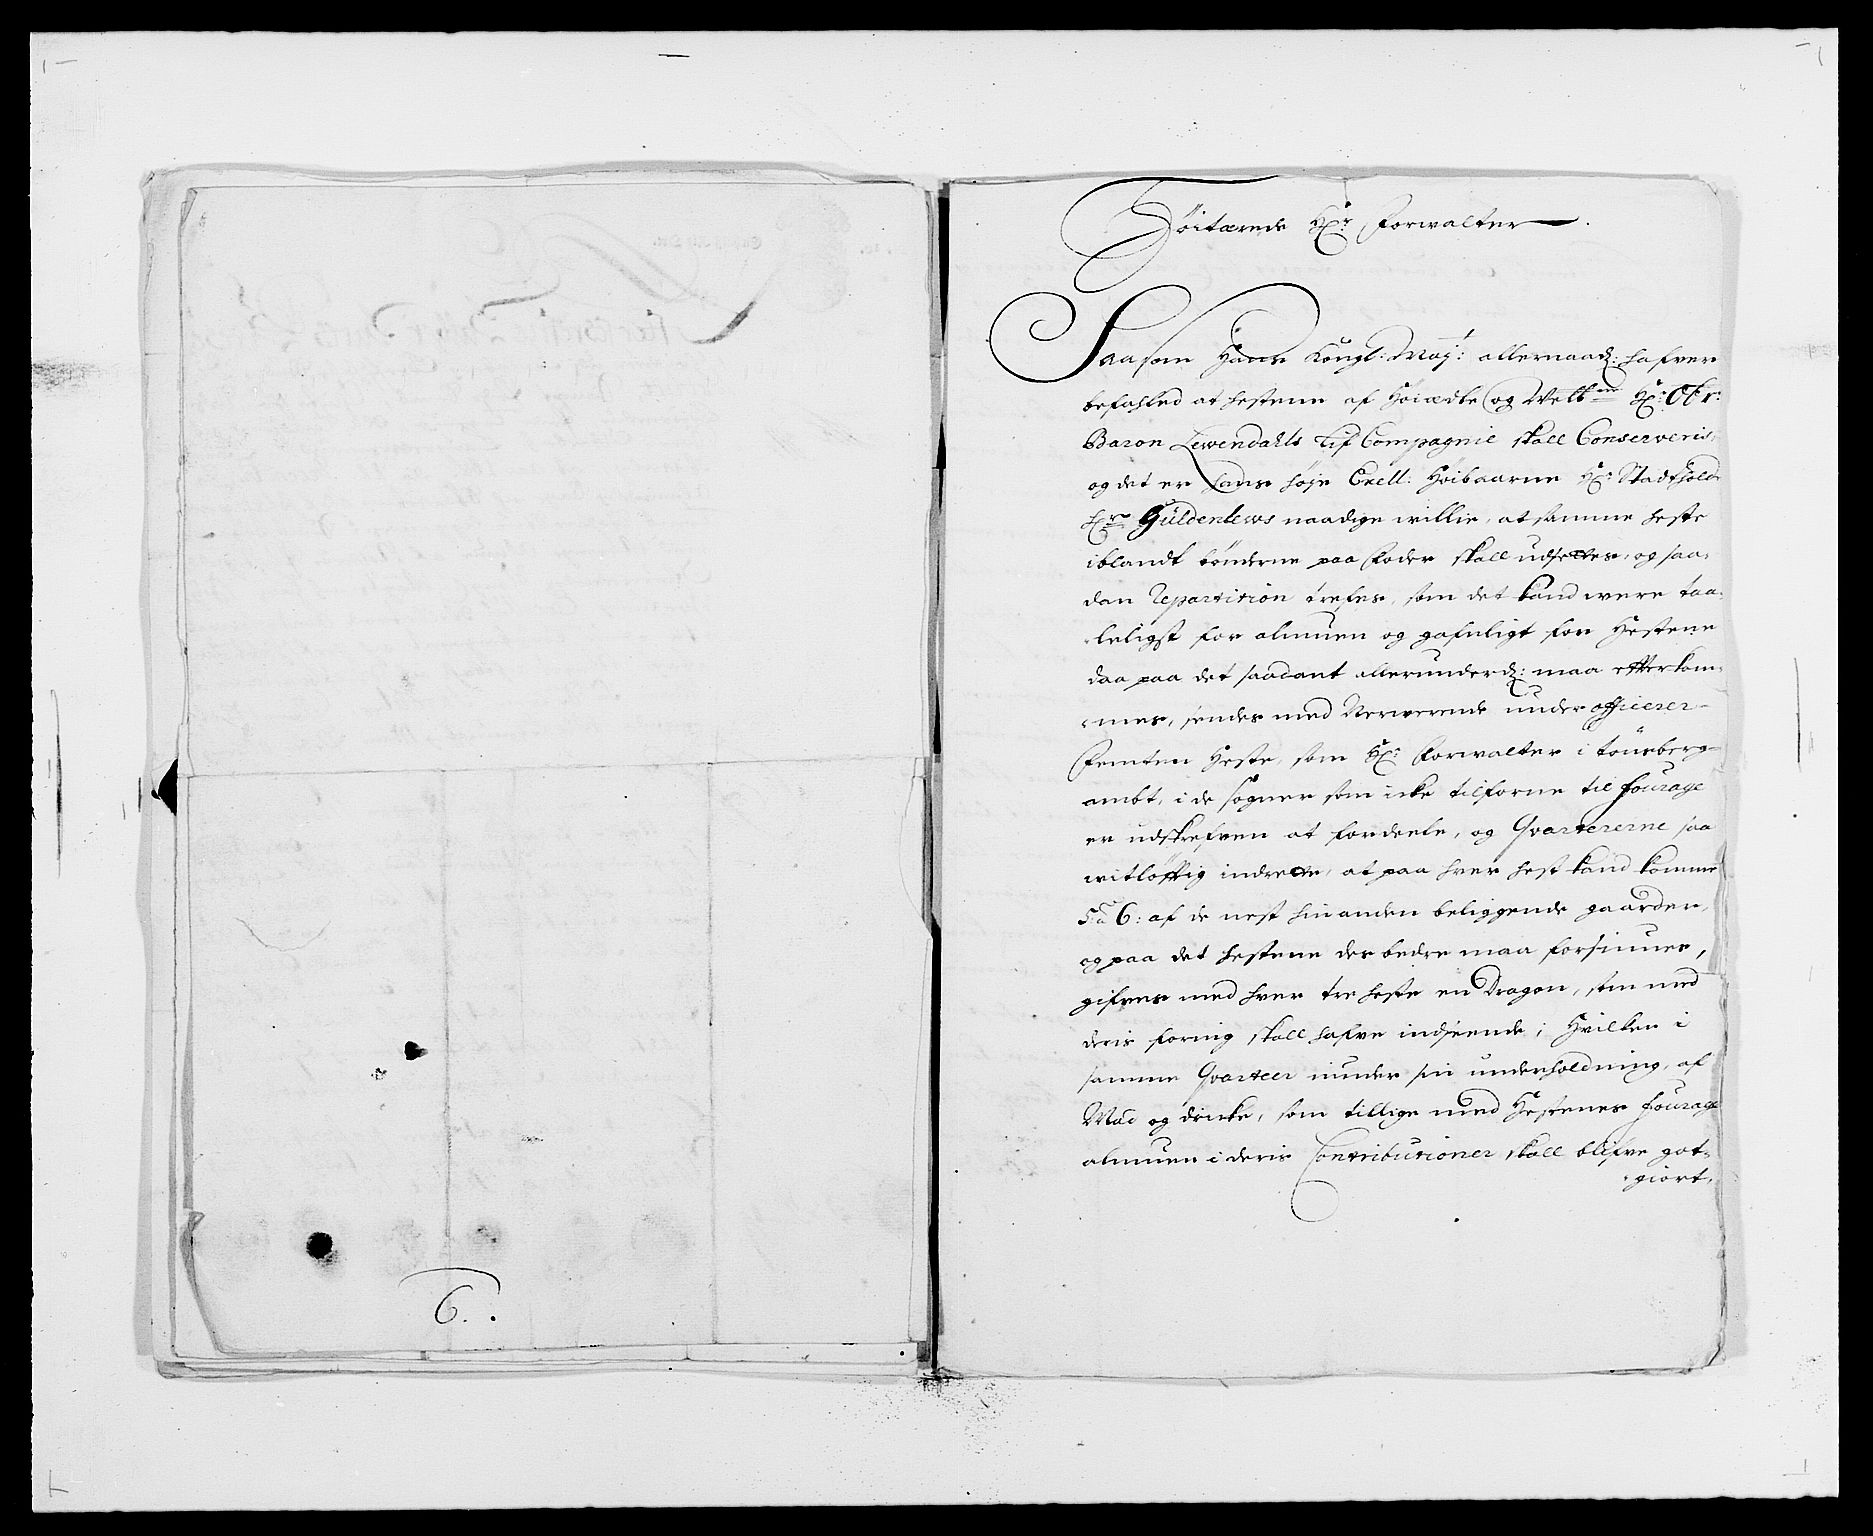 6.
Höitærende Hr: Forwalter
Saasom Hans Kongl: May:t allernaad: hafver
befahled at hestene af Höiædle og Welb:ne Hr: Obr:
Baron Lewendahls Lif Compagnie skall Conserveris,
og det er hans höye Excell: Höibaarne Hr: Stadthold:
Hr: Güldenlews naadige willie, at samme heste
iblandt bönderne paa Foder skall udsettes, og saa-
dan repartition trefes, som det kand were taa-
leligst for almuen og gafnligt for Hestene
daa paa det saadant allerunderd: maa efterkom-
mes, sendes med Nerverende under officerer
Femten Heste, som Hr: Forwalter i Tönsberg
ambt, i de sogner som icke tilforne til fourage
er udskrefven at fordeele, og Qvartererne saa
witlöfftig indrette, at paa hver hest kand komme
5 a 6: af de nest hin anden beliggende gaarder,
og paa det hestene des bedre maa forsiunes,
gifves med hver tre heste en Dragon, som med
deris foring skall hafve indseende, Hvilken i
samme Qvarteer niuder sin underholdning, af
Mad og dricke, som tillige med Hestenes fourage
almuen i deris Contributioner skall blifve got-
giort,